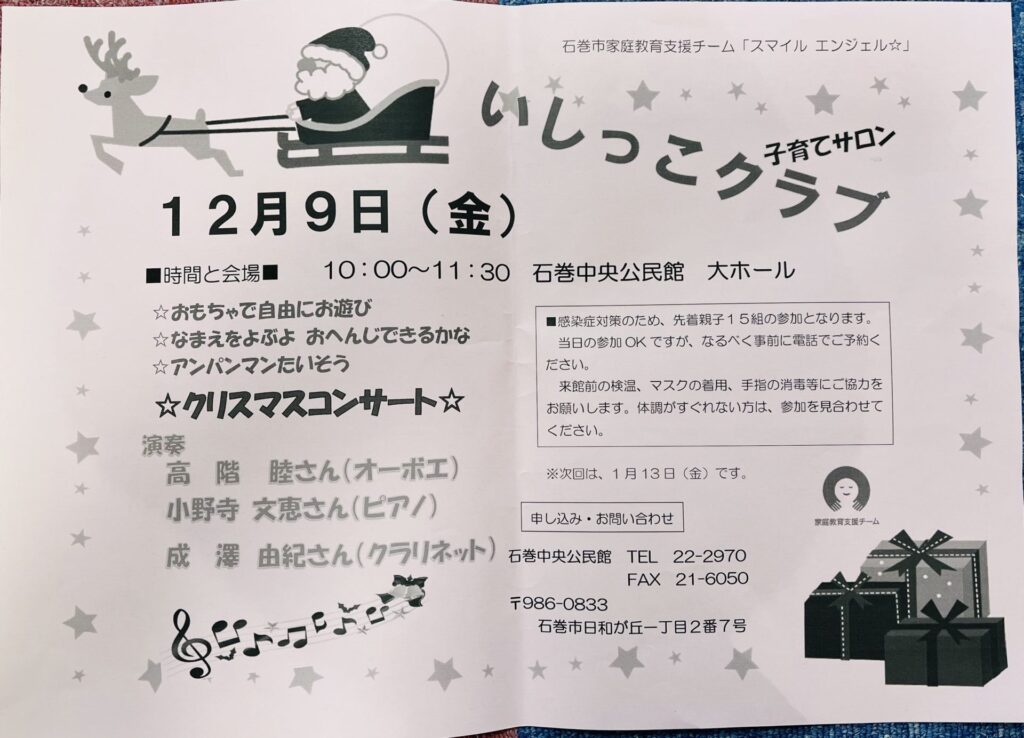 石巻市家庭教育支援チーム「スマイル エンジェル☆」
いしっこクラブ
子育てサロン
12月9日(金)
■時間と会場■ 10:00~11:30 石巻中央公民館 大ホール
☆おもちゃで自由にお遊び
☆なまえをよぶよ おへんじできるかな
☆アンパンマンたいそう
☆クリスマスコンサート☆
演奏
高 階 睦さん(オーボエ)
小野寺 文恵さん(ピアノ)
成 澤 由紀さん(クラリネット)
■感染症対策のため、先着親子15組の参加となります。
当日の参加OKですが、なるべく事前に電話でご予約く
ださい。
来館前の検温、マスクの着用、手指の消毒等にご協力を
お願いします。体調がすぐれない方は、参加を見合わせて
ください。
※次回は、1月13日(金)です。
家庭教育支援チーム
申し込み・お問い合わせ
石巻中央公民館 TEL 22-2970
FAX 21-6050
〒986-0833
石巻市日和が丘一丁目2番7号